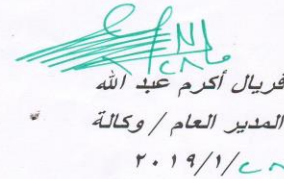 فريال أكرم عبد الله
المدير العام / وكالة
٢٠١٩/١/